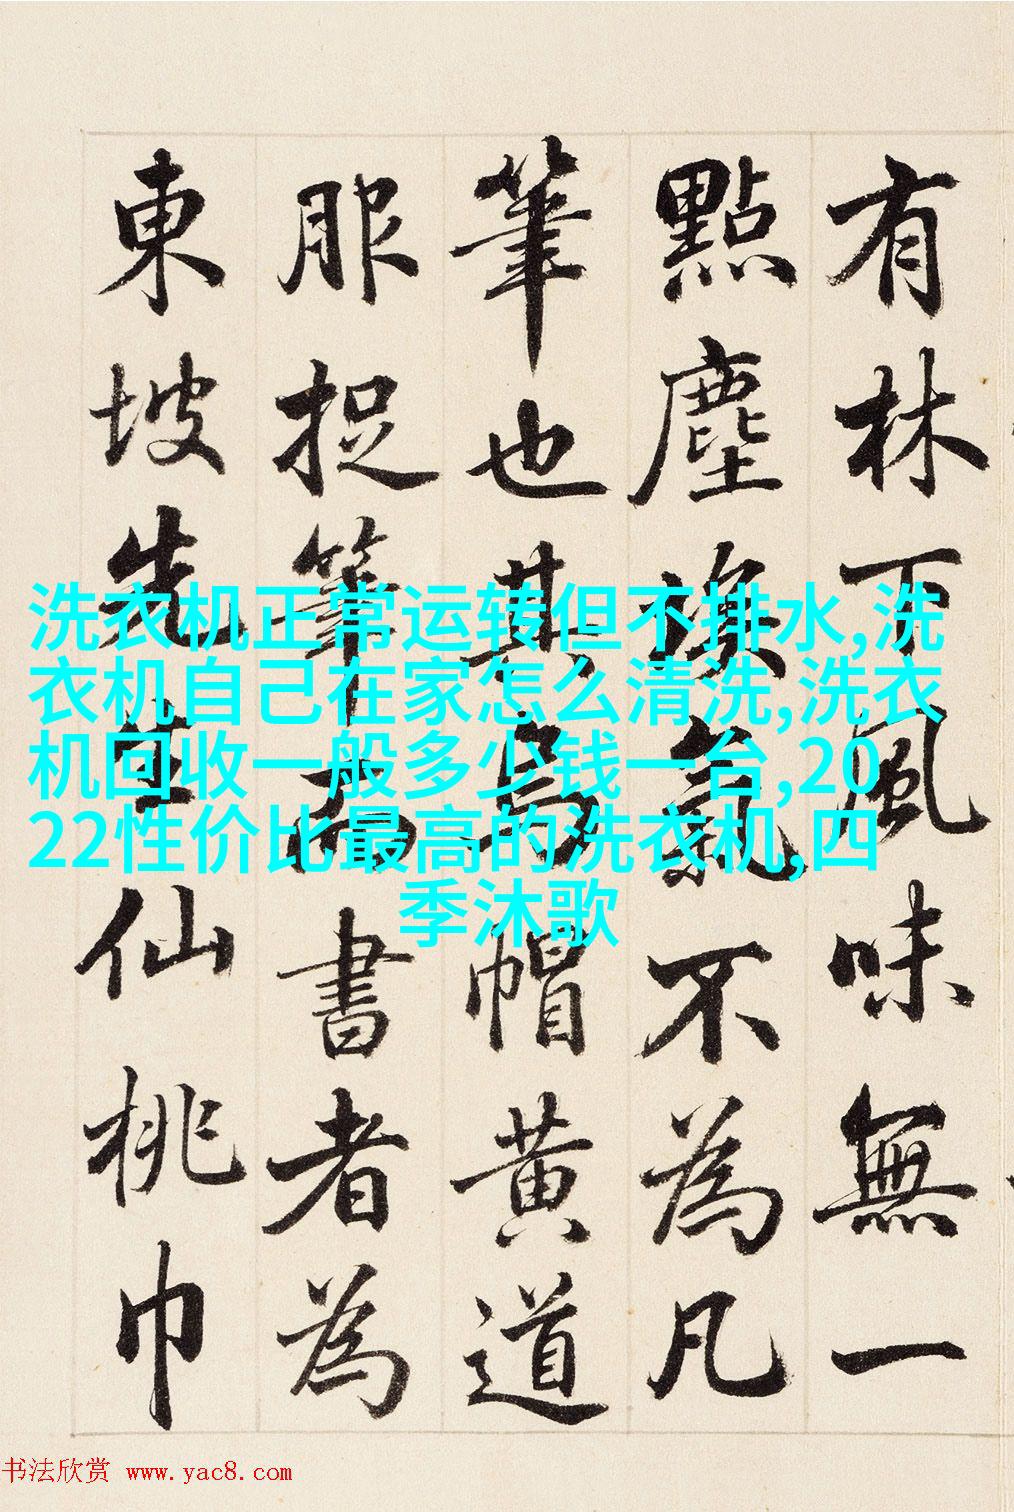 有林下風味無一
點塵氣不為凡
筆也其烏帽黃道
服捉筆而書者為
東坡先生仙桃巾
洗衣机正常运转但不排水,洗
衣机自己在家怎么清洗,洗衣
机回收一般多少钱一台,20
22性价比最高的洗衣机,四
季沐歌
书法欣赏 www.yac8.com